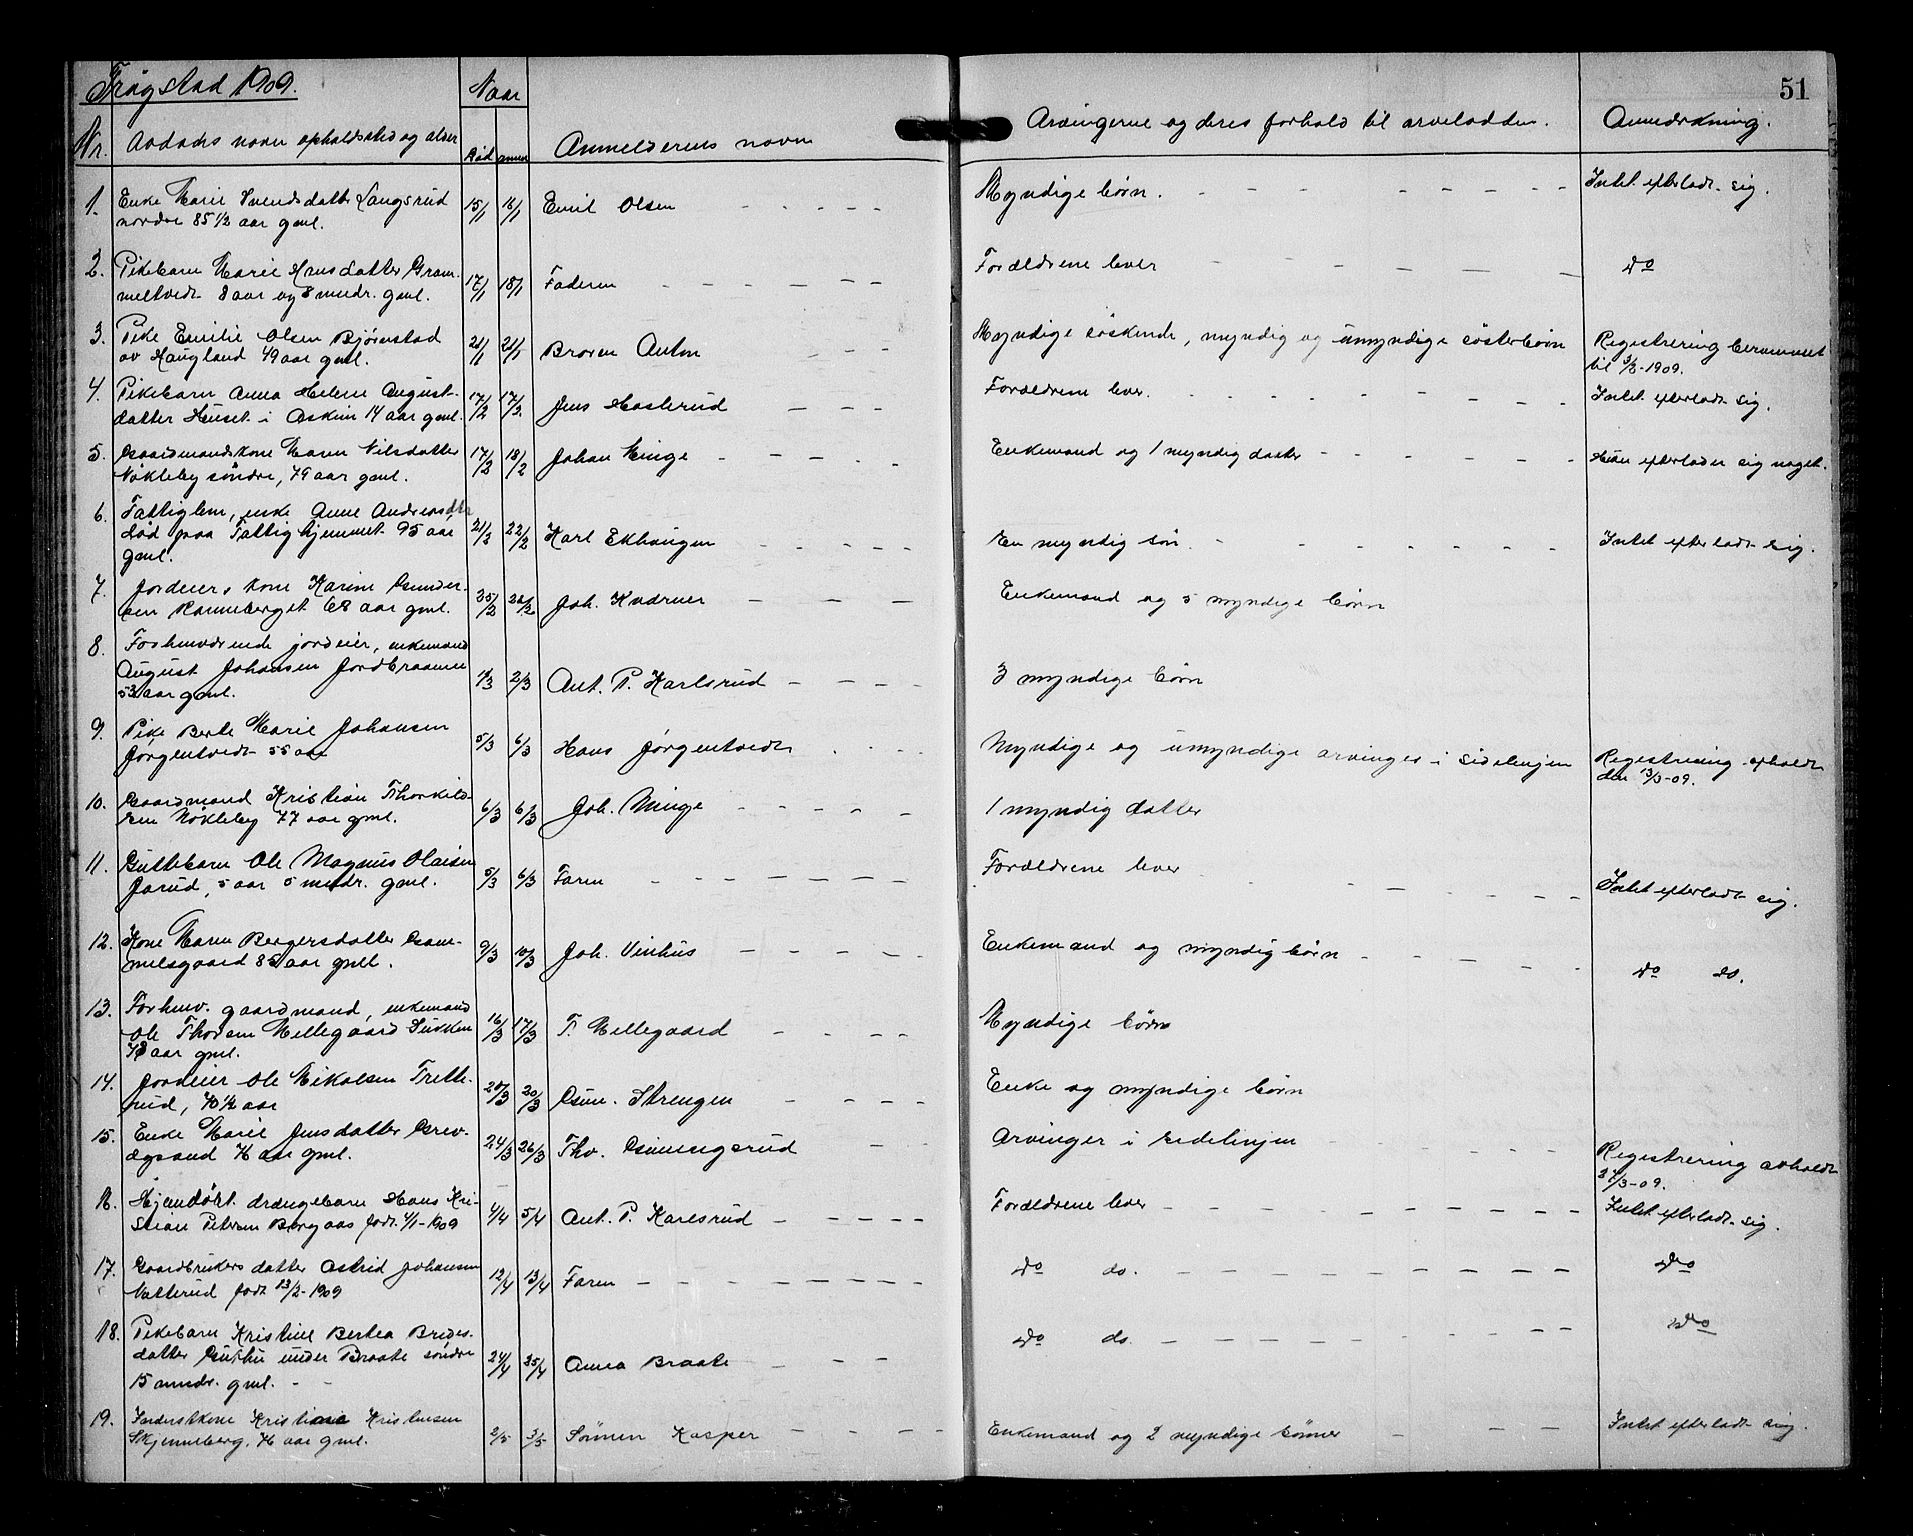 Trøgstad 1909.
Naar
51
Nr. Avdødes navn opholdssted og alder
død anm.
Anmelderens navn
Arvingerne og deres forhold til arveladden.
Anmerkning.
1. Enke Marie Svendsdatter Langsrud
nordre 85 1/2 aar gml.
15/1 16/1 Emil Olsen
Myndige børn.
Intet efterladt sig.
2. Pikebarn Marie Hansdatter Gram-
meltvedt 8 aar og 8 mndr. gml.
17/1 18/1 Faderen
Forældrene lever
Do
3. Pike Emilie Olsen Bjørnstad
av Haugland 49 aar gml.
21/1 21/1 Broren Anton
Myndige søskende, myndig og umyndige søsterbørn
Registrering berammet
til 3/2-1909.
4. Pikebarn Anna Helene August-
datter Huset i Askim 14 aar gml.
17/2 17/2 Jens Hosterud
Forældrene lever.
Intet efterladt sig.
5. Gaardmandskone Maren Nilsdatter
Nøkleby søndre, 79 aar gml.
17/2 18/2 Johan Minge
Enkemand og 1 myndig datter
Hun efterlader sig noget.
6. Fattiglem, enke Anne Andreasdtr
død paa Fattighjemmet 95 aar
gml.
21/2 22/2 Karl Ekhaugen
En myndig søn.
Intet efterladt sig.
7. Jordeiers kone Karine Gunder-
sen Ramneberget 68 aar gml.
25/2 26/2 Joh. Kværner
Enkemand og 5 myndige børn
8. Forhenværende jordeier, enkemand
August Johansen Jordbraaten
53 aar gml.
1/3 2/3 Ant. P. Karlsrud
3 myndige børn
9. Pike Berte Marie Johansen
Jørgentvedt 55 aar
5/3 6/3 Hans Jørgentvedt
Myndige og umyndige arvinger i sidelinjen
Registrering afholdt
den 13/3-09.
10. Gaardmand Kristian Thorkild-
sen Nøkleby 77 aar gml.
6/3 6/3 Joh. Minge
1 myndig datter
11. Guttebarn Ole Magnus Olaisen
Jarud, 5 aar 5 mndr. gml.
5/3 6/3 Faren
Forældrene lever
Intet efterladt sig.
12. Kone Maren Bergersdatter Gam-
melsgaard 85 aar gml.
9/3 10/3 Joh. Vinhus
Enkemand og myndig børn
Do do.
13. Forhenv. gaardmand, enkemand
Ole Thoresen Mellegaard Sukken
78 aar gml.
16/3 17/3 T. Mellegaard
Myndige børn
14. Jordeier Ole Mikalsen Trette-
rud, 70 1/2 aar
20/3 20/3 Gun. Strengen
Enke og myndige børn
15. Enke Marie Jensdatter Grev-
ægsand 76 aar gml.
24/3 26/3 Thv. Gunnengsrud
Arvinger i sidelinjen
Registrering avholdt
27/3-09.
16. Hjemdøbt drængebarn Hans Kri-
stian Petersen Bergaas født 4/1-1909
4/4 5/4 Ant. P. Karlsrud
Forældrene lever
Intet efterladt sig.
17. Gaardbrukers datter Astrid Johansen
Natterud født 23/2-1909
12/4 13/4 Faren
Do do.
Do
18. Pikebarn Kristine Bertea Bredes-
datter Gukhu under Braate søndre
15 mndr. gml.
24/4 25/4 Anna Braate
Do do.
Do
19. Inderstkone Kristiane Kristensen
Skjenneberg, 76 aar gml.
2/5 3/5 Sønnen Kasper
Enkemand og 2 myndige sønner
Intet efterladt sig.